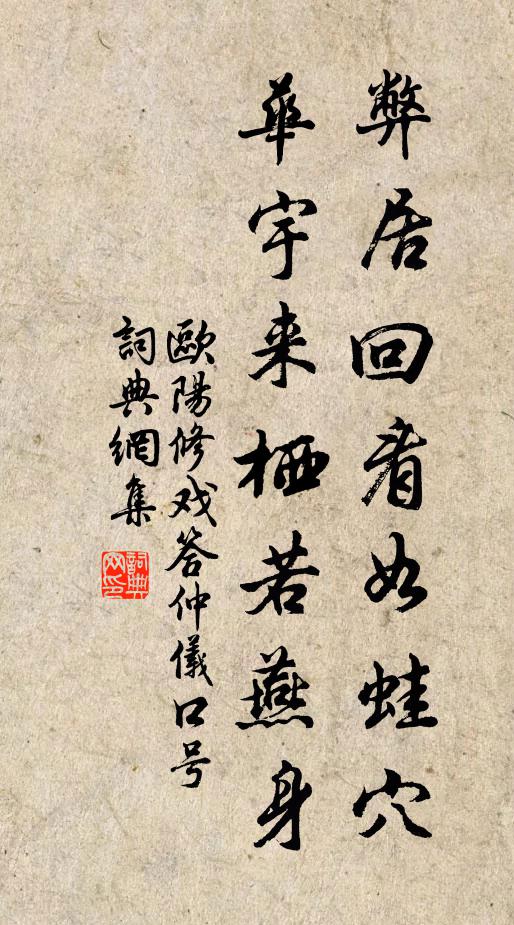 弊居回看如蛙穴
華宇来栖若燕身
歐陽修戏答仲儀口号
詞典網集
詞典网印